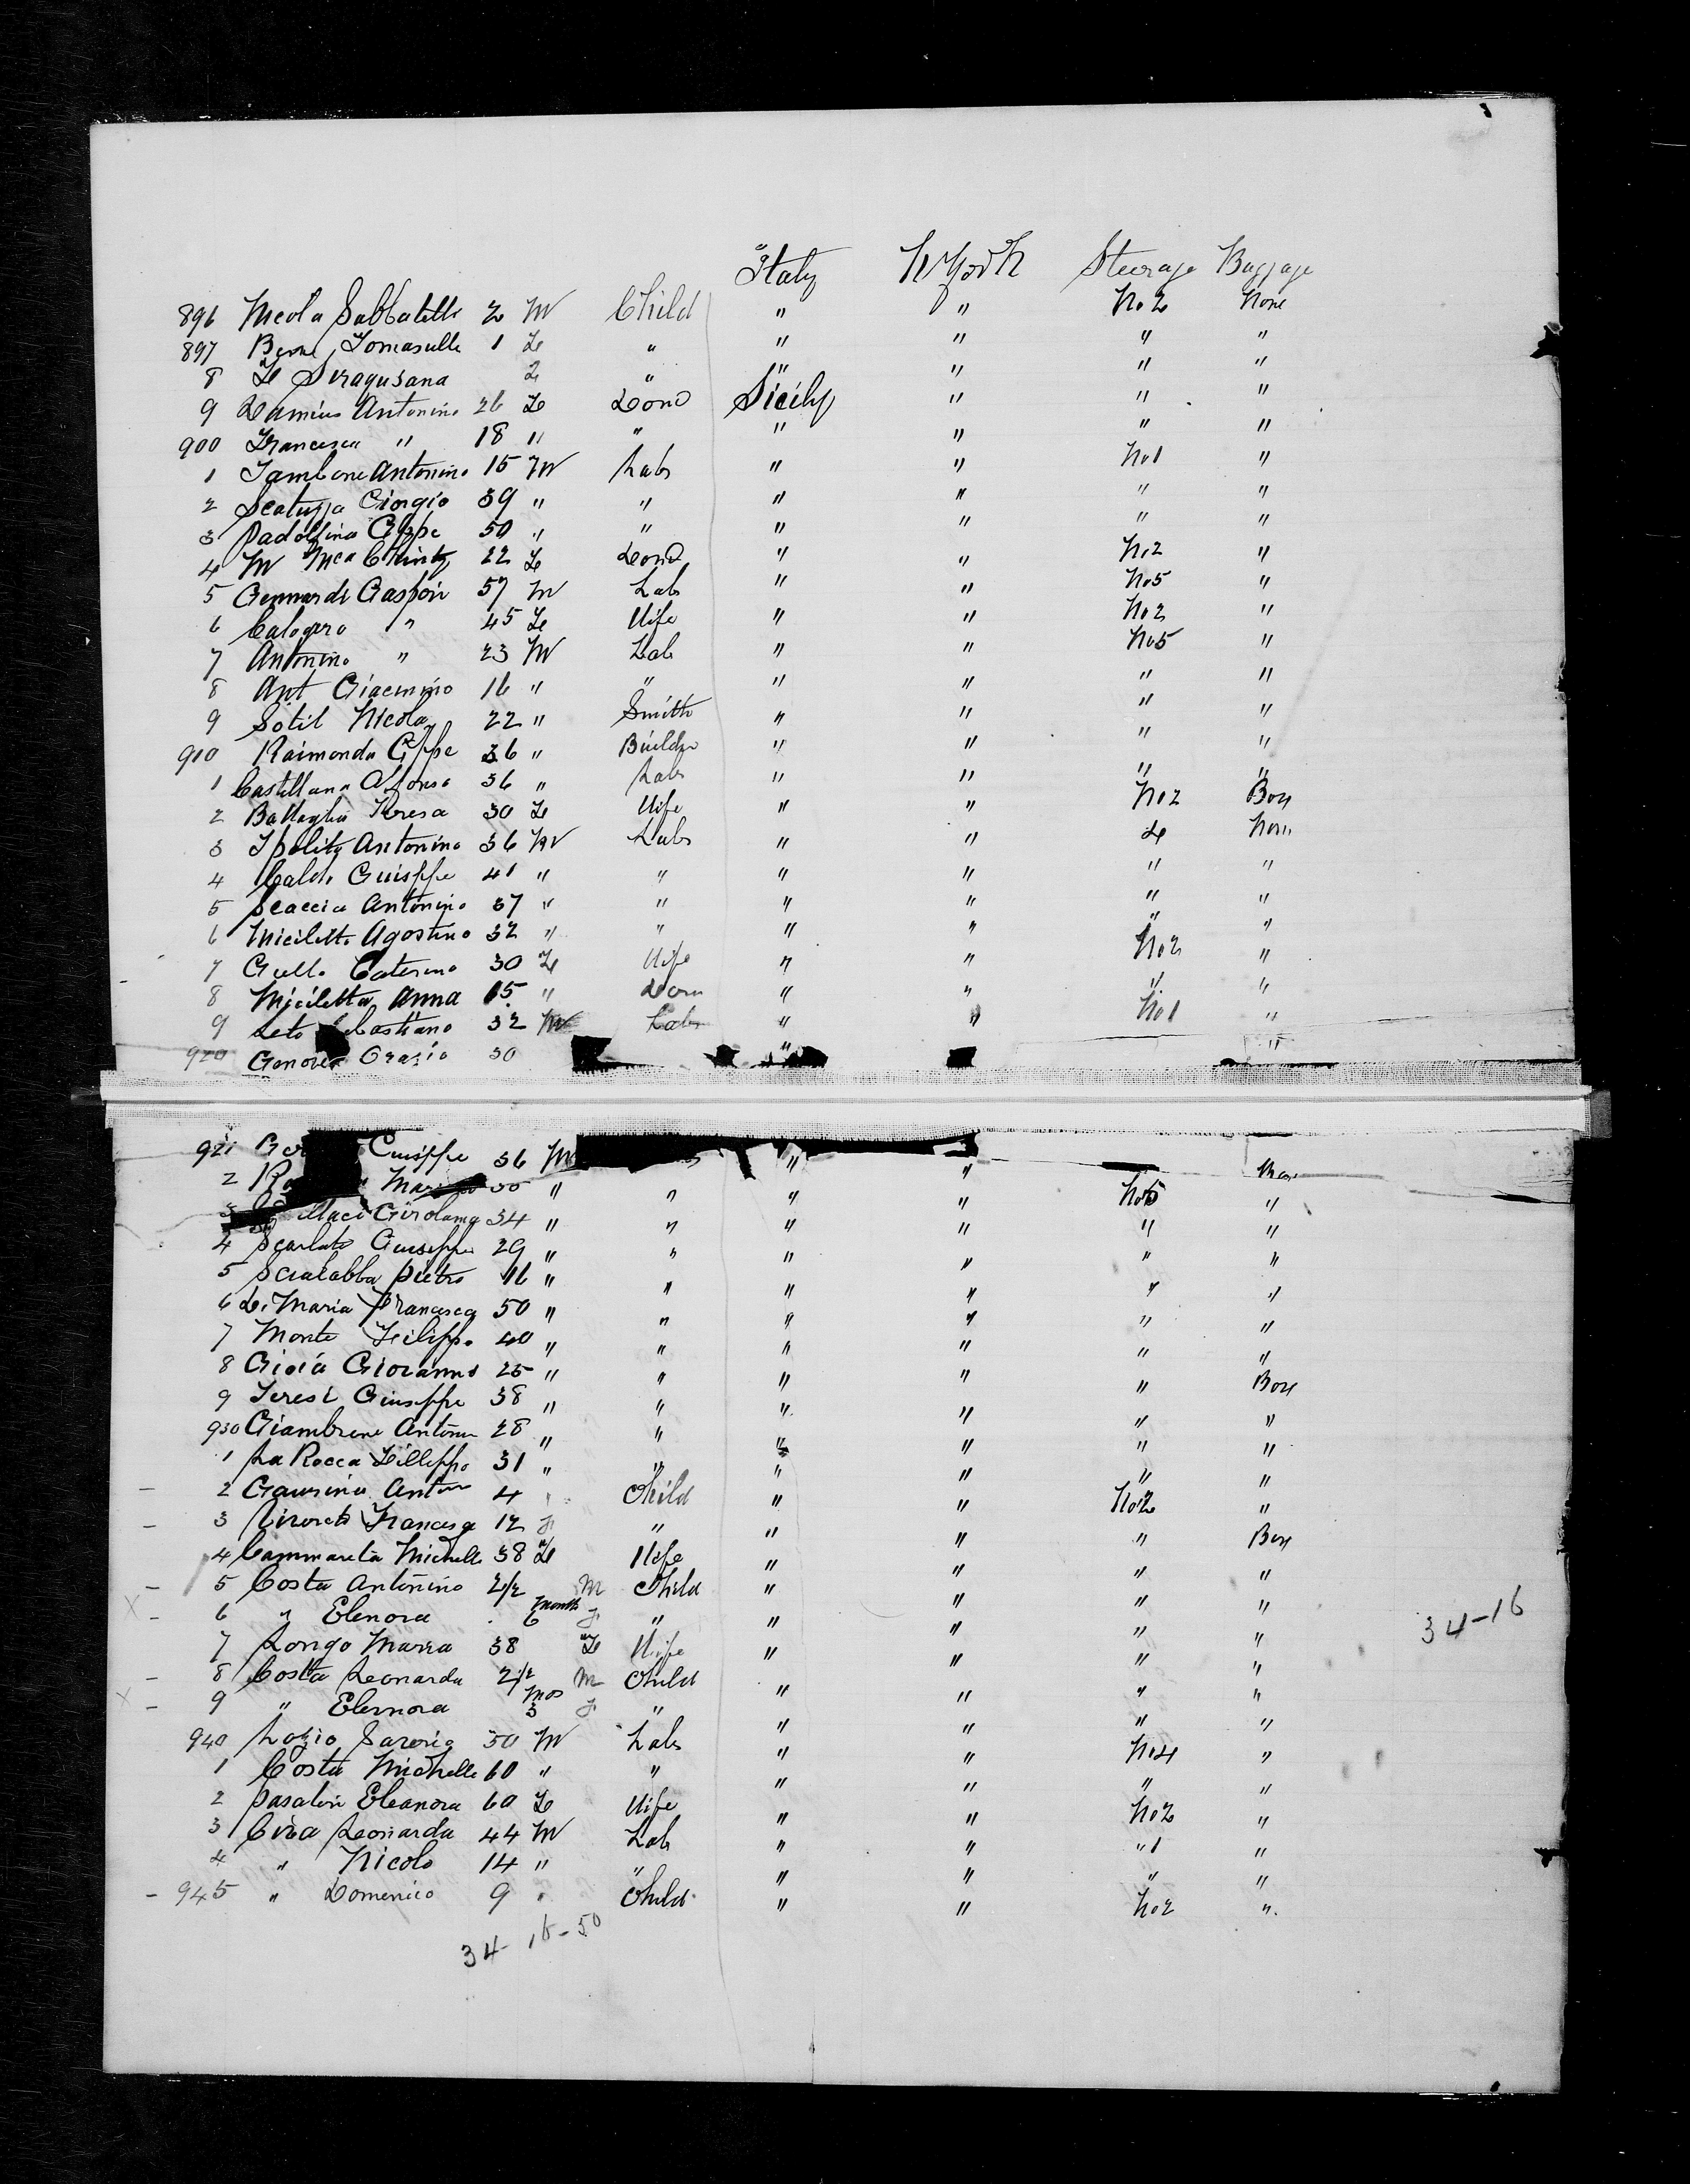 Italy N York Steerage Baggage
896 Nicola Sabbatelli 2 M Child " " No 2 None
897 Tomasulli 1 Fe " " " " "
8 Fe Siragusana " " " " "
9 Damius Antonino 26 Fe Dom Sicily " " "
900 Francesca " 18 " " " " " "
1 Tambone Antonino 15 M Labr " " No 1 "
2 Scatuzza Giorgio 39 " " " " " "
3 Gppe 50 " " " " " "
4 M 22 Fe Dom " " No 2 "
5 Gennardi Gaspari 57 M Lab " " No 5 "
6 Calogero " 45 Fe Wife " " No 2 "
7 Antonino " 23 M Lab " " No 5 "
8 Ant Giacmino 16 " " " " " "
9 Sotil Nicola 22 " Smith " " " "
910 Raimondo Gppe 36 " Builder " " " "
1 Castellana Alfonso 36 " Labr " " " "
2 Battaglia Teresa 30 Fe Wife " " No 2 Box
3 Ipolity Antonino 36 M Labr " " 4 None
4 Guisppe 41 " " " " " "
5 Scaccia Antonino 37 " " " " " "
6 Miciletto Agostino 32 " " " " " "
7 Gullo Caterina 30 Fe Wife " " No 2 "
8 Miciletta Anna 15 " Dom " " " "
9 Leto 32 M Labr " " No 1 "
920 Orazio 30 " "
921 Guisppe 36 M " "
2 " " " " No 5 "
3 Girolama 34 " " " " " "
4 Scarlato Guiseppe 29 " " " " " "
5 Scialabba Pietro 16 " " " " " "
6 Di Maria Francesca 50 " " " " " "
7 Monte Feilippo 40 " " " " " "
8 Gioia Giovanni 25 " " " " " Box
9 Teresi Giuseppe 38 " " " " " "
930 Giambrone Anton 28 " " " " " "
1 La Rocca Fillippo 31 " " " " " "
- 2 Anton 4 " Child " " No 2 "
- 3 Francesca 12 f " " " " Box
4 Cammareta Michelle 38 Fe Wife " " " "
- 5 Costa Antonino 2/2 M Child " " " "
X - 6 " Elenora 6 months f " " " " "
7 Longo Maria 38 Fe Wife " " " "
34-16
- 8 Costa Leonarda 2 1/2 M Child " " " "
X - 9 " Elernora 3 mos f " " " " "
940 Lozio 50 M Labr " " No 4 "
1 Costa Michelle 60 " " " " " "
2 Eleanora 60 Fe Wife " " No 2 "
3 Leonarda 44 M Lab " " " 1 "
4 " Nicolo 14 " " " " " "
- 945 " Domenico 9 " Child " " No 2 "
34-16-50